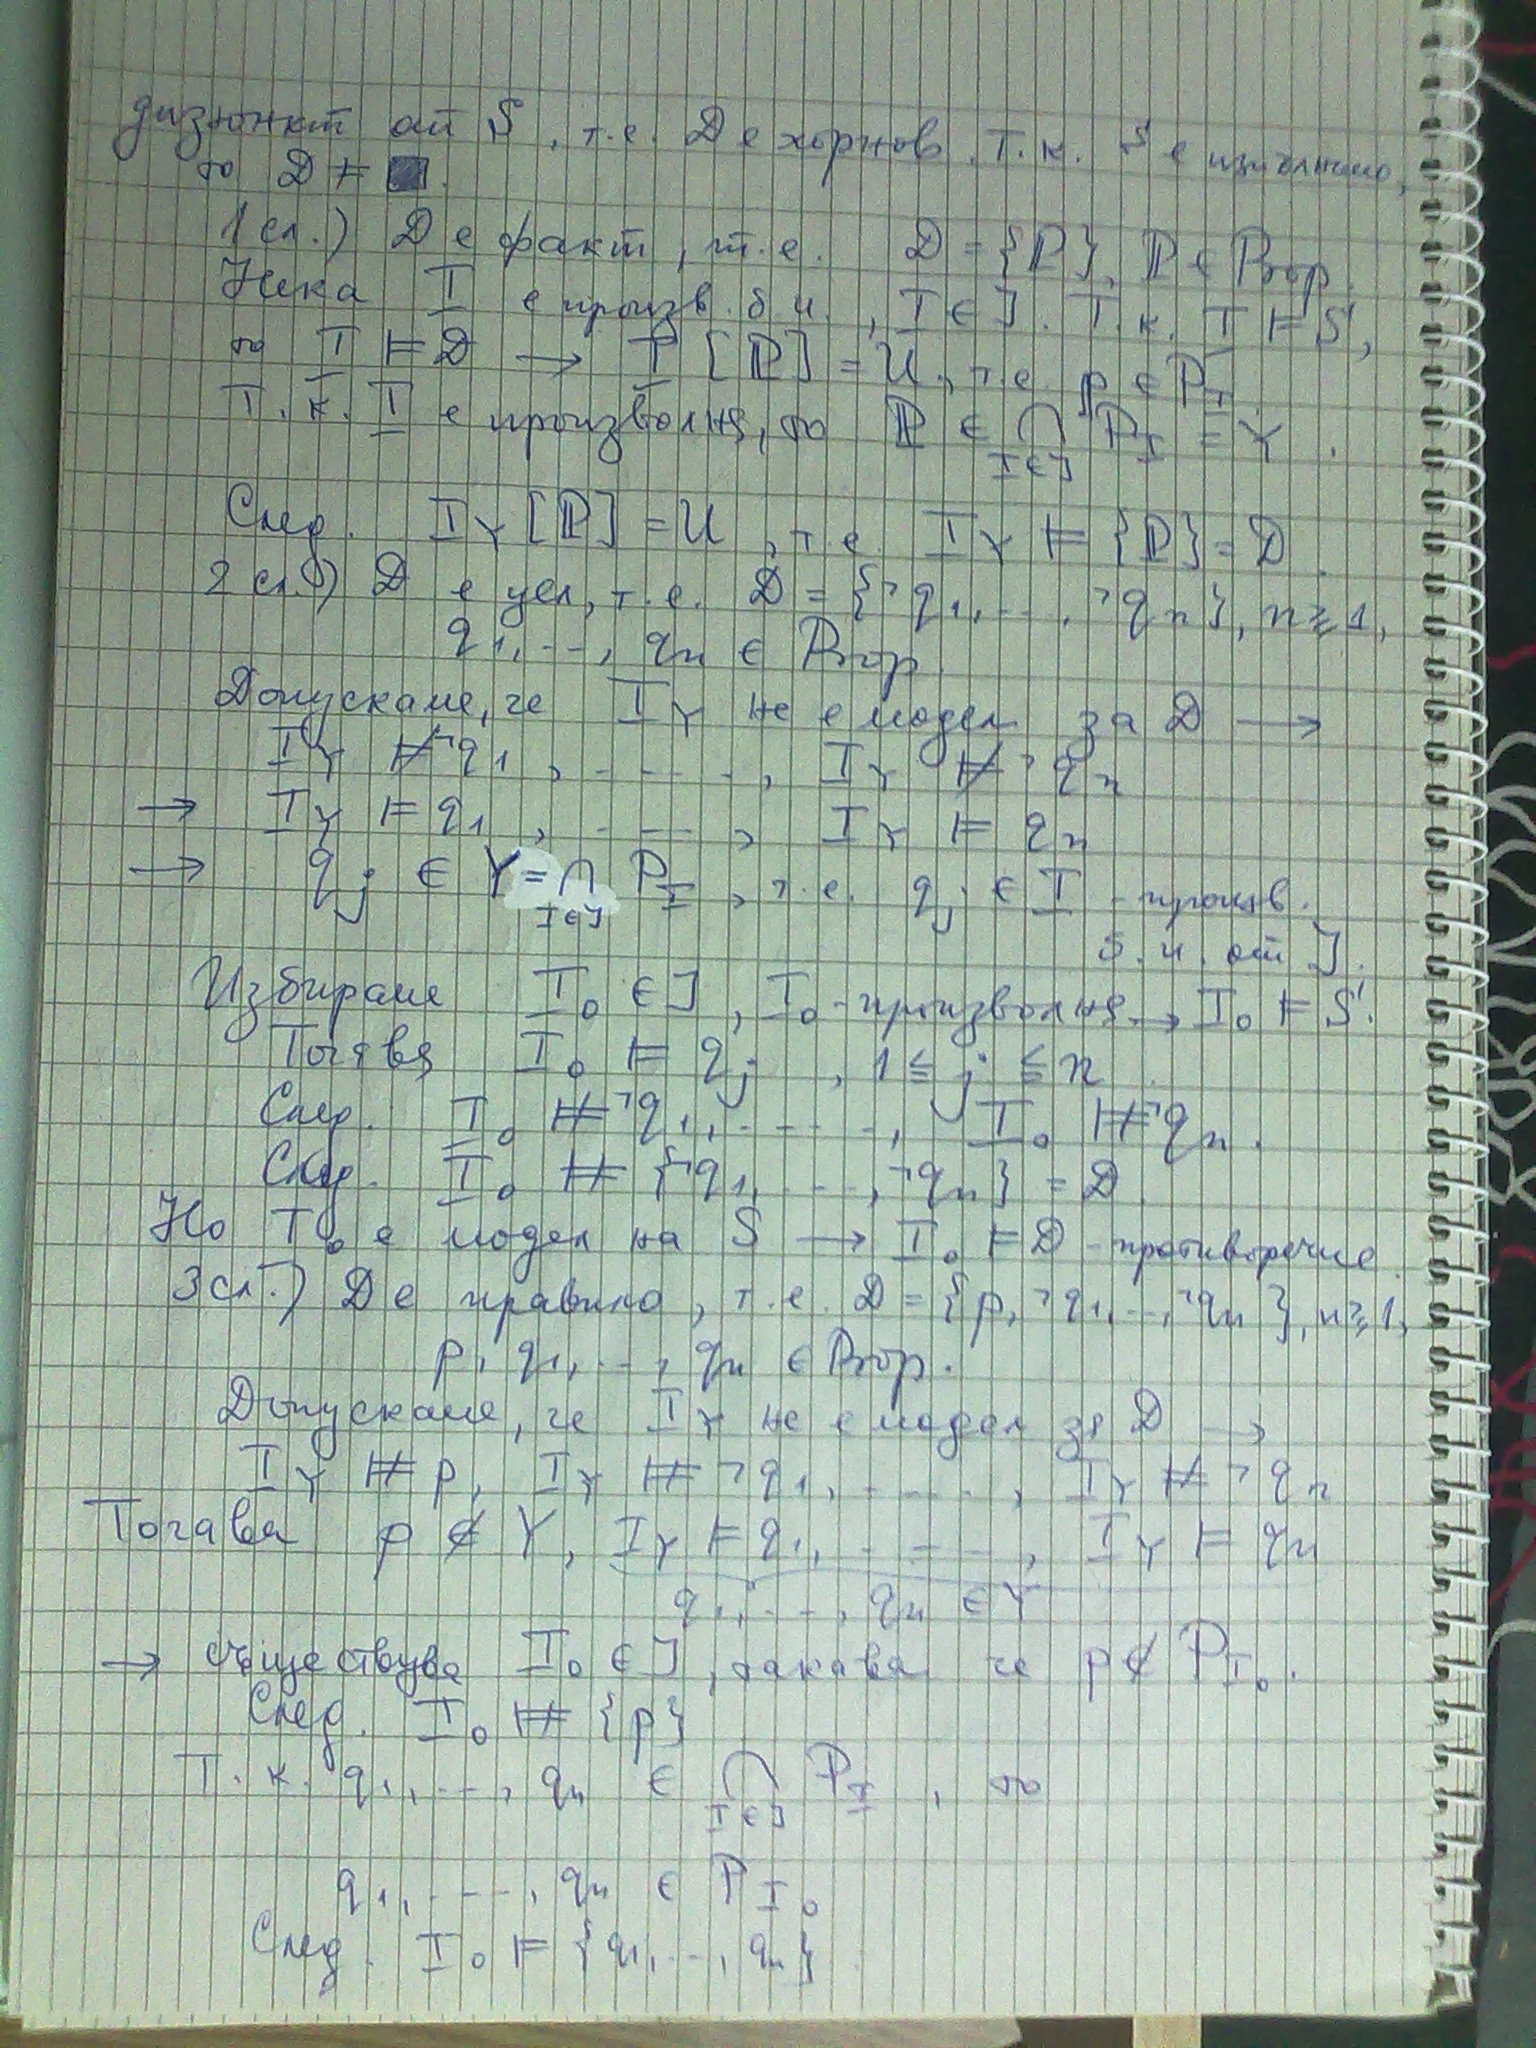 дизюнкт от S, т.е. D е хорнов. Т.к. S е изпълнимо,
то D ≠ ■.
1 сл.) D е факт, т.е. D = {P}, P ∈ Prop.
Нека I е произв. б.и., I ∈ J. Т.к. I ⊨ S,
то I ⊨ D → I [P] = И, т.е. p ∈ P_I
Т.к. I е произволна, то P ∈ ⋂_{I∈J} P_I = Y.
След. I_Y [P] = И, т.е. I_Y ⊨ {P} = D.
2 сл.) D е цел, т.е. D = {¬q₁, ..., ¬qₙ}, n ≥ 1,
q₁, ..., qₙ ∈ Prop.
Допускаме, че I_Y не е модел за D →
I_Y ⊭ ¬q₁, ....., I_Y ⊭ ¬qₙ
→ I_Y ⊨ q₁, ....., I_Y ⊨ qₙ
→ q_j ∈ Y = ⋂_{I∈J} P_I, т.е. q_j ∈ I - произв.
б.и. от J.
Избираме I₀ ∈ J, I₀ - произволна → I₀ ⊨ S.
Тогава I₀ ⊨ q_j, 1 ≤ j ≤ n.
След. I₀ ⊭ ¬q₁, ....., I₀ ⊭ ¬qₙ.
След. I₀ ⊭ {¬q₁, ..., ¬qₙ} = D.
Но I₀ е модел на S → I₀ ⊨ D - противоречие.
3 сл.) D е правило, т.е. D = {p, ¬q₁, ..., ¬qₙ}, n ≥ 1,
p, q₁, ..., qₙ ∈ Prop.
Допускаме, че I_Y не е модел за D →
I_Y ⊭ p, I_Y ⊭ ¬q₁, ....., I_Y ⊭ ¬qₙ
Тогава p ∉ Y, I_Y ⊨ q₁, ....., I_Y ⊨ qₙ
q₁, ..., qₙ ∈ Y
→ съществува I₀ ∈ J, такава че p ∉ P_{I₀}.
След. I₀ ⊭ {p}
Т.к. q₁, ..., qₙ ∈ ⋂_{I∈J} P_I, то
q₁, ...., qₙ ∈ P_{I₀}
След. I₀ ⊨ {q₁, ..., qₙ}